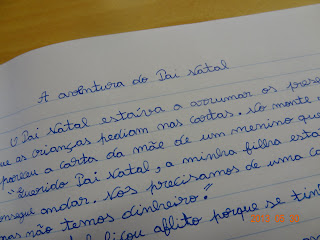 A aventura do Pai Natal
O Pai Natal estava a arrumar os prese
ue as crianças pediam nas cartas. No monte
pareceu a carta da mãe de um menino que
"Querido Pai Natal, a minha filha está
onsegue andar. Nós precisamos de uma ca
mas não temos dinheiro."
ficou aflito porque se tinh